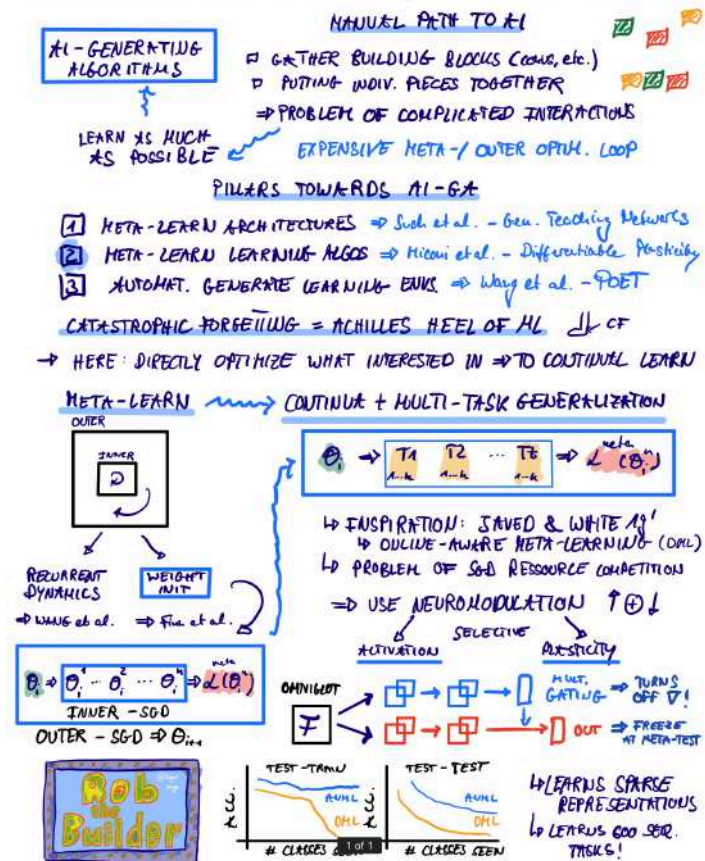 MANUAL PATH TO AI
AI-GENERATING
ALGORITHMS
GATHER BUILDING BLOCKS (CONVS, etc.)
PUTTING INDIV. PIECES TOGETHER
⇒ PROBLEM OF COMPLICATED INTERACTIONS
LEARN AS MUCH
AS POSSIBLE
EXPENSIVE META-/OUTER OPTIM. LOOP
PILLARS TOWARDS AI-GA
1 META-LEARN ARCHITECTURES ⇒ Such et al. - Gen. Teaching Networks
2 META-LEARN LEARNING ALGOS ⇒ Miconi et al. - Differentiable Plasticity
3 AUTOMAT. GENERATE LEARNING ENVS. ⇒ Wang et al. - POET
CATASTROPHIC FORGETTING = ACHILLES HEEL OF ML CF
→ HERE: DIRECTLY OPTIMIZE WHAT INTERESTED IN ⇒ TO CONTINUAL LEARN
META-LEARN CONTINUA + MULTI-TASK GENERALIZATION
OUTER
INNER
θi ⇒ T1 T2 ... ⇒ L meta (θi n)
1...k 1...k 1...k
↳ INSPIRATION: JAVED & WHITE 19'
↳ ONLINE-AWARE META-LEARNING (OML)
↳ PROBLEM OF SGD RESSOURCE COMPETITION
RECURRENT
DYNAMICS
WEIGHT
INIT
⇒ WANG et al. ⇒ Finn et al.
⇒ USE NEUROMODULATION ↑⊕↓
SELECTIVE
ACTIVATION PLASTICITY
θi ⇒ θi 1 ... θi 2 ... θi n ⇒ L meta (θi n)
INNER-SGD
OUTER-SGD ⇒ θi+1
OMNIGLOT
MULT.
GATING ⇒ TURNS
OFF ∇!
OUT ⇒ FREEZE
AT META-TEST
Rob
the
Builder
TEST-TRAIN
ACC.
ANML
OML
# CLASSES SEEN
TEST-TEST
ANML
OML
# CLASSES SEEN
1 of 1
↳ LEARNS SPARSE
REPRESENTATIONS
↳ LEARNS 600 SEQ.
TASKS!